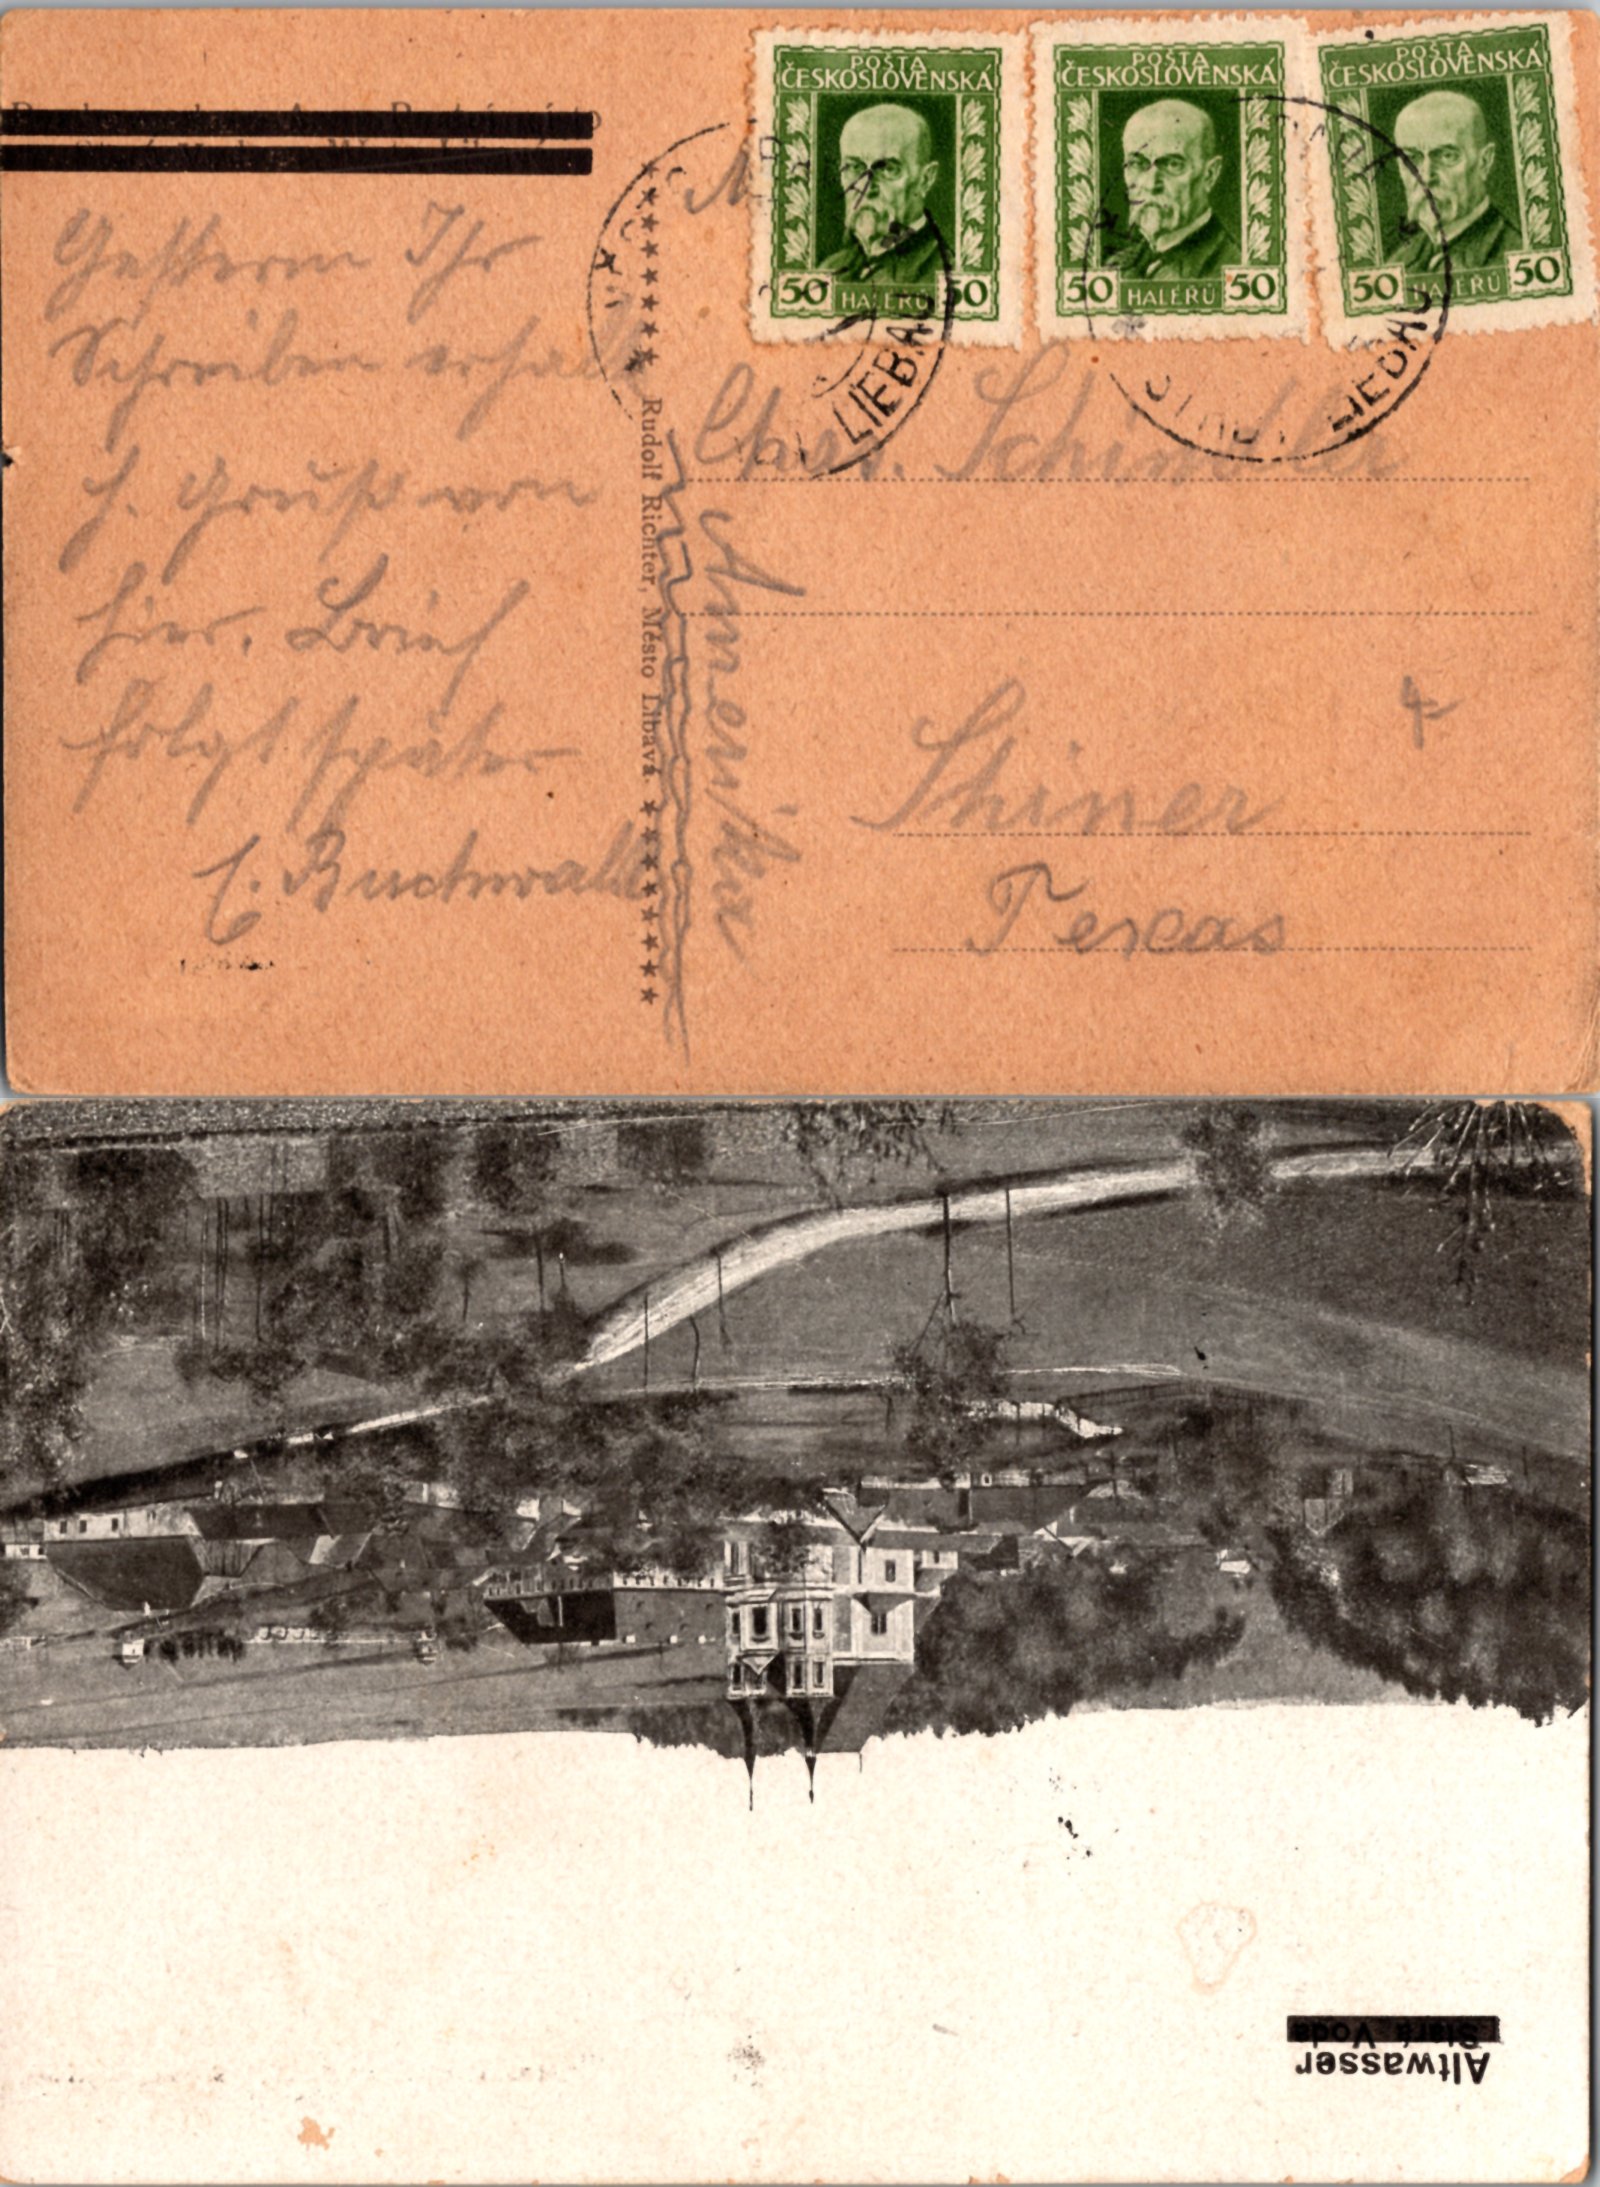 POŠTA
ČESKOSLOVENSKÁ
50 HALÉŘŮ 50
POŠTA
ČESKOSLOVENSKÁ
50 HALÉŘŮ 50
POŠTA
ČESKOSLOVENSKÁ
50 HALÉŘŮ 50
LIEBAU
STADT LIEBAU
Gestern Ihr
Schreiben erhalt
h. Gruß von
hier. Brief
folgt später
E. Buchwald
Rudolf Richter, Město Libavá
Chas. Schindler
Amerika
Shiner
Texas
Altwasser
Stará Voda